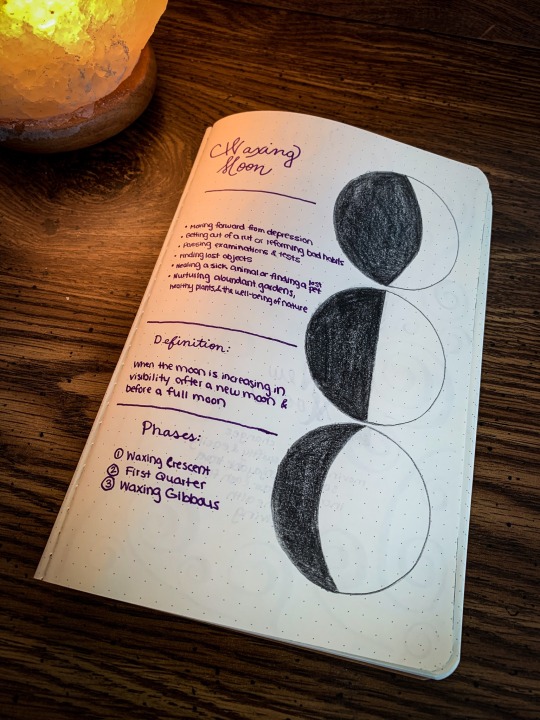 Waxing
Moon
• Moving forward from depression
• Getting out of a rut or reforming bad habits
• Passing examinations & tests
• Finding lost objects
• Healing a sick animal or finding a lost pet
• Nurturing abundant gardens,
healthy plants, & the well-being of nature
Definition:
When the moon is increasing in
visibility after a new moon &
before a full moon
Phases:
① Waxing Crescent
② First Quarter
③ Waxing Gibbous